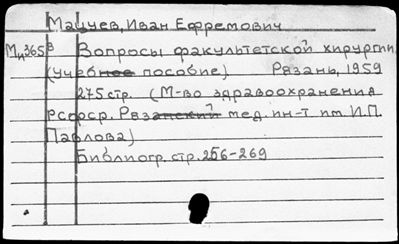 Мацуев, Иван Ефремович
Мц365в Вопросы факультетской хирургии
(учебное пособие) Рязань, 1959
275 стр. (М-во здравоохранения
РСФСР. Рязанский мед. ин-т им. И.П.
Павлова)
Библиогр. стр. 256-269